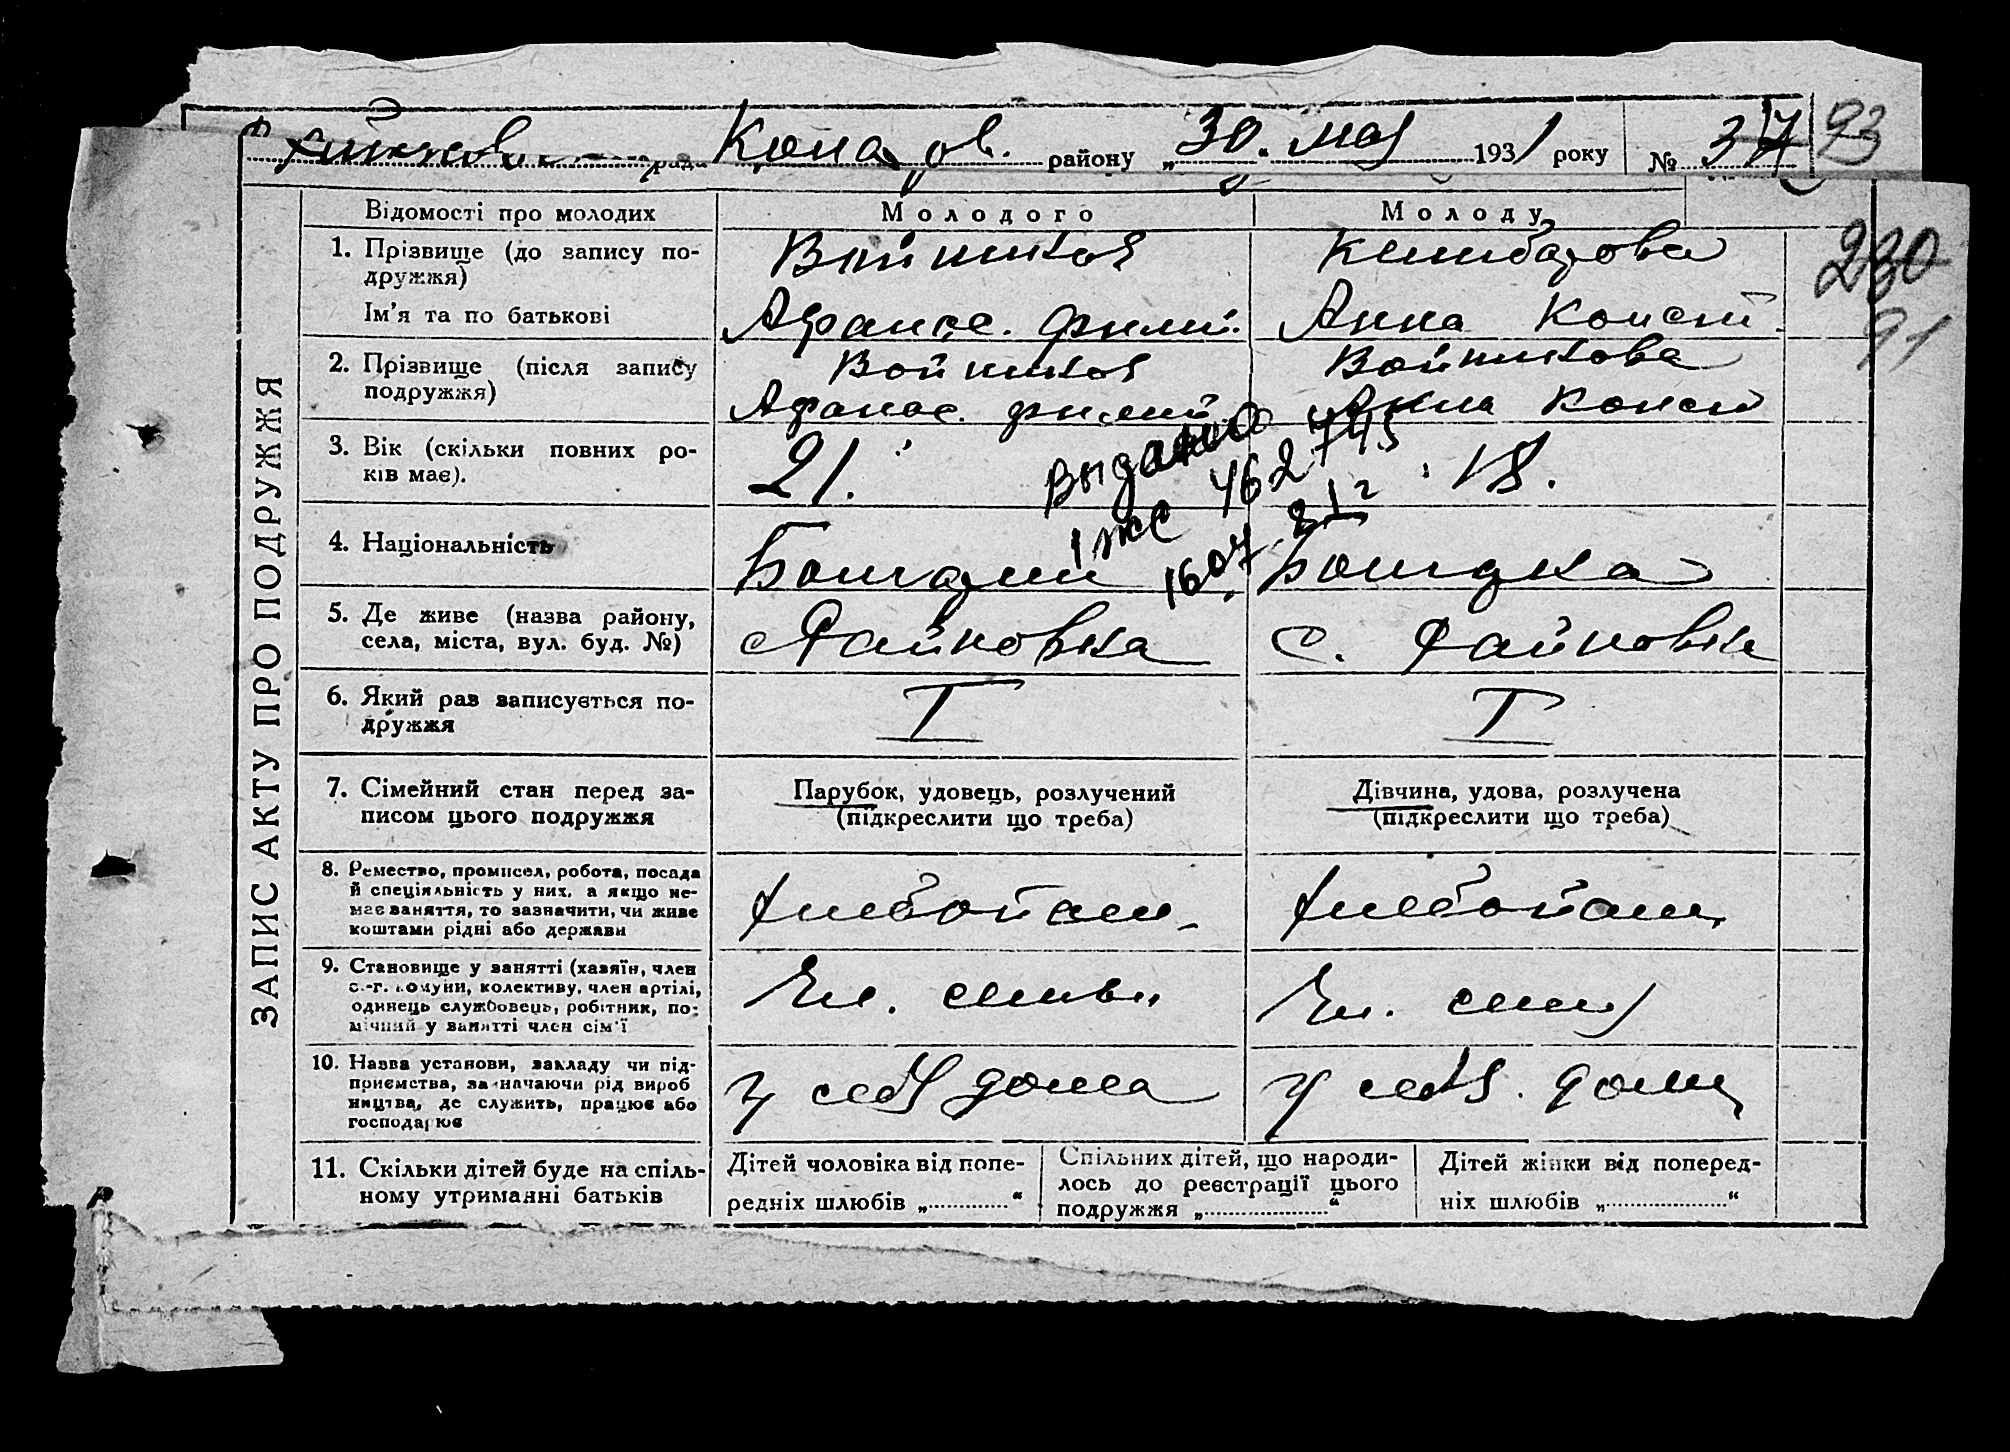 района „30“ мая 1931 року № 37 93
Відомості про молодих Молодого Молоду
230
91
ЗАПИС АКТУ ПРО ПОДРУЖЖЯ
1. Прізвище (до запису по-
дружжя)
Войников
Ім'я та по батькові
Афанас. Филип. Анна Конст.
2. Прізвище (після запису
подружжя)
Войников Войникова
Афанас. Филип. Анна Конст
3. Вік (скільки повних ро-
ків має).
21. 18.
Выдано
462745
16 07 31 г
4. Національність
5. Де живе (назва району,
села, міста, вул. буд. №)
с Райновка с. Райновка
6. Який раз записується по-
дружжя
I I
7. Сімейний стан перед за-
писом цього подружжя
Парубок, удовець, розлучений
(підкреслити що треба)
Дівчина, удова, розлучена
(підкреслити що треба)
8. Ремество, промисел, робота, посада
й спеціяльність у них, а якщо не-
має заняття, то зазначити, чи живе
коштами рідні або держави
9. Становище у занятті (хазяїн, член
с.-г. комуни, колективу, член артілі,
одинець службовець, робітник, по-
мічний у занятті член сім'ї
Чл. семьи Чл. семьи
10. Назва установи, закладу чи під-
приємства, зазначаючи рід вироб
ництва, де служить, працює або
господарює
у себя дома у себя дома
11. Скільки дітей буде на спіль-
ному утриманні батьків
Дітей чоловіка від попе-
редніх шлюбів „............“
Спільних дітей, що народи-
лось до реєстрації цього
подружжя „............“
Дітей жінки від поперед-
ніх шлюбів „............“